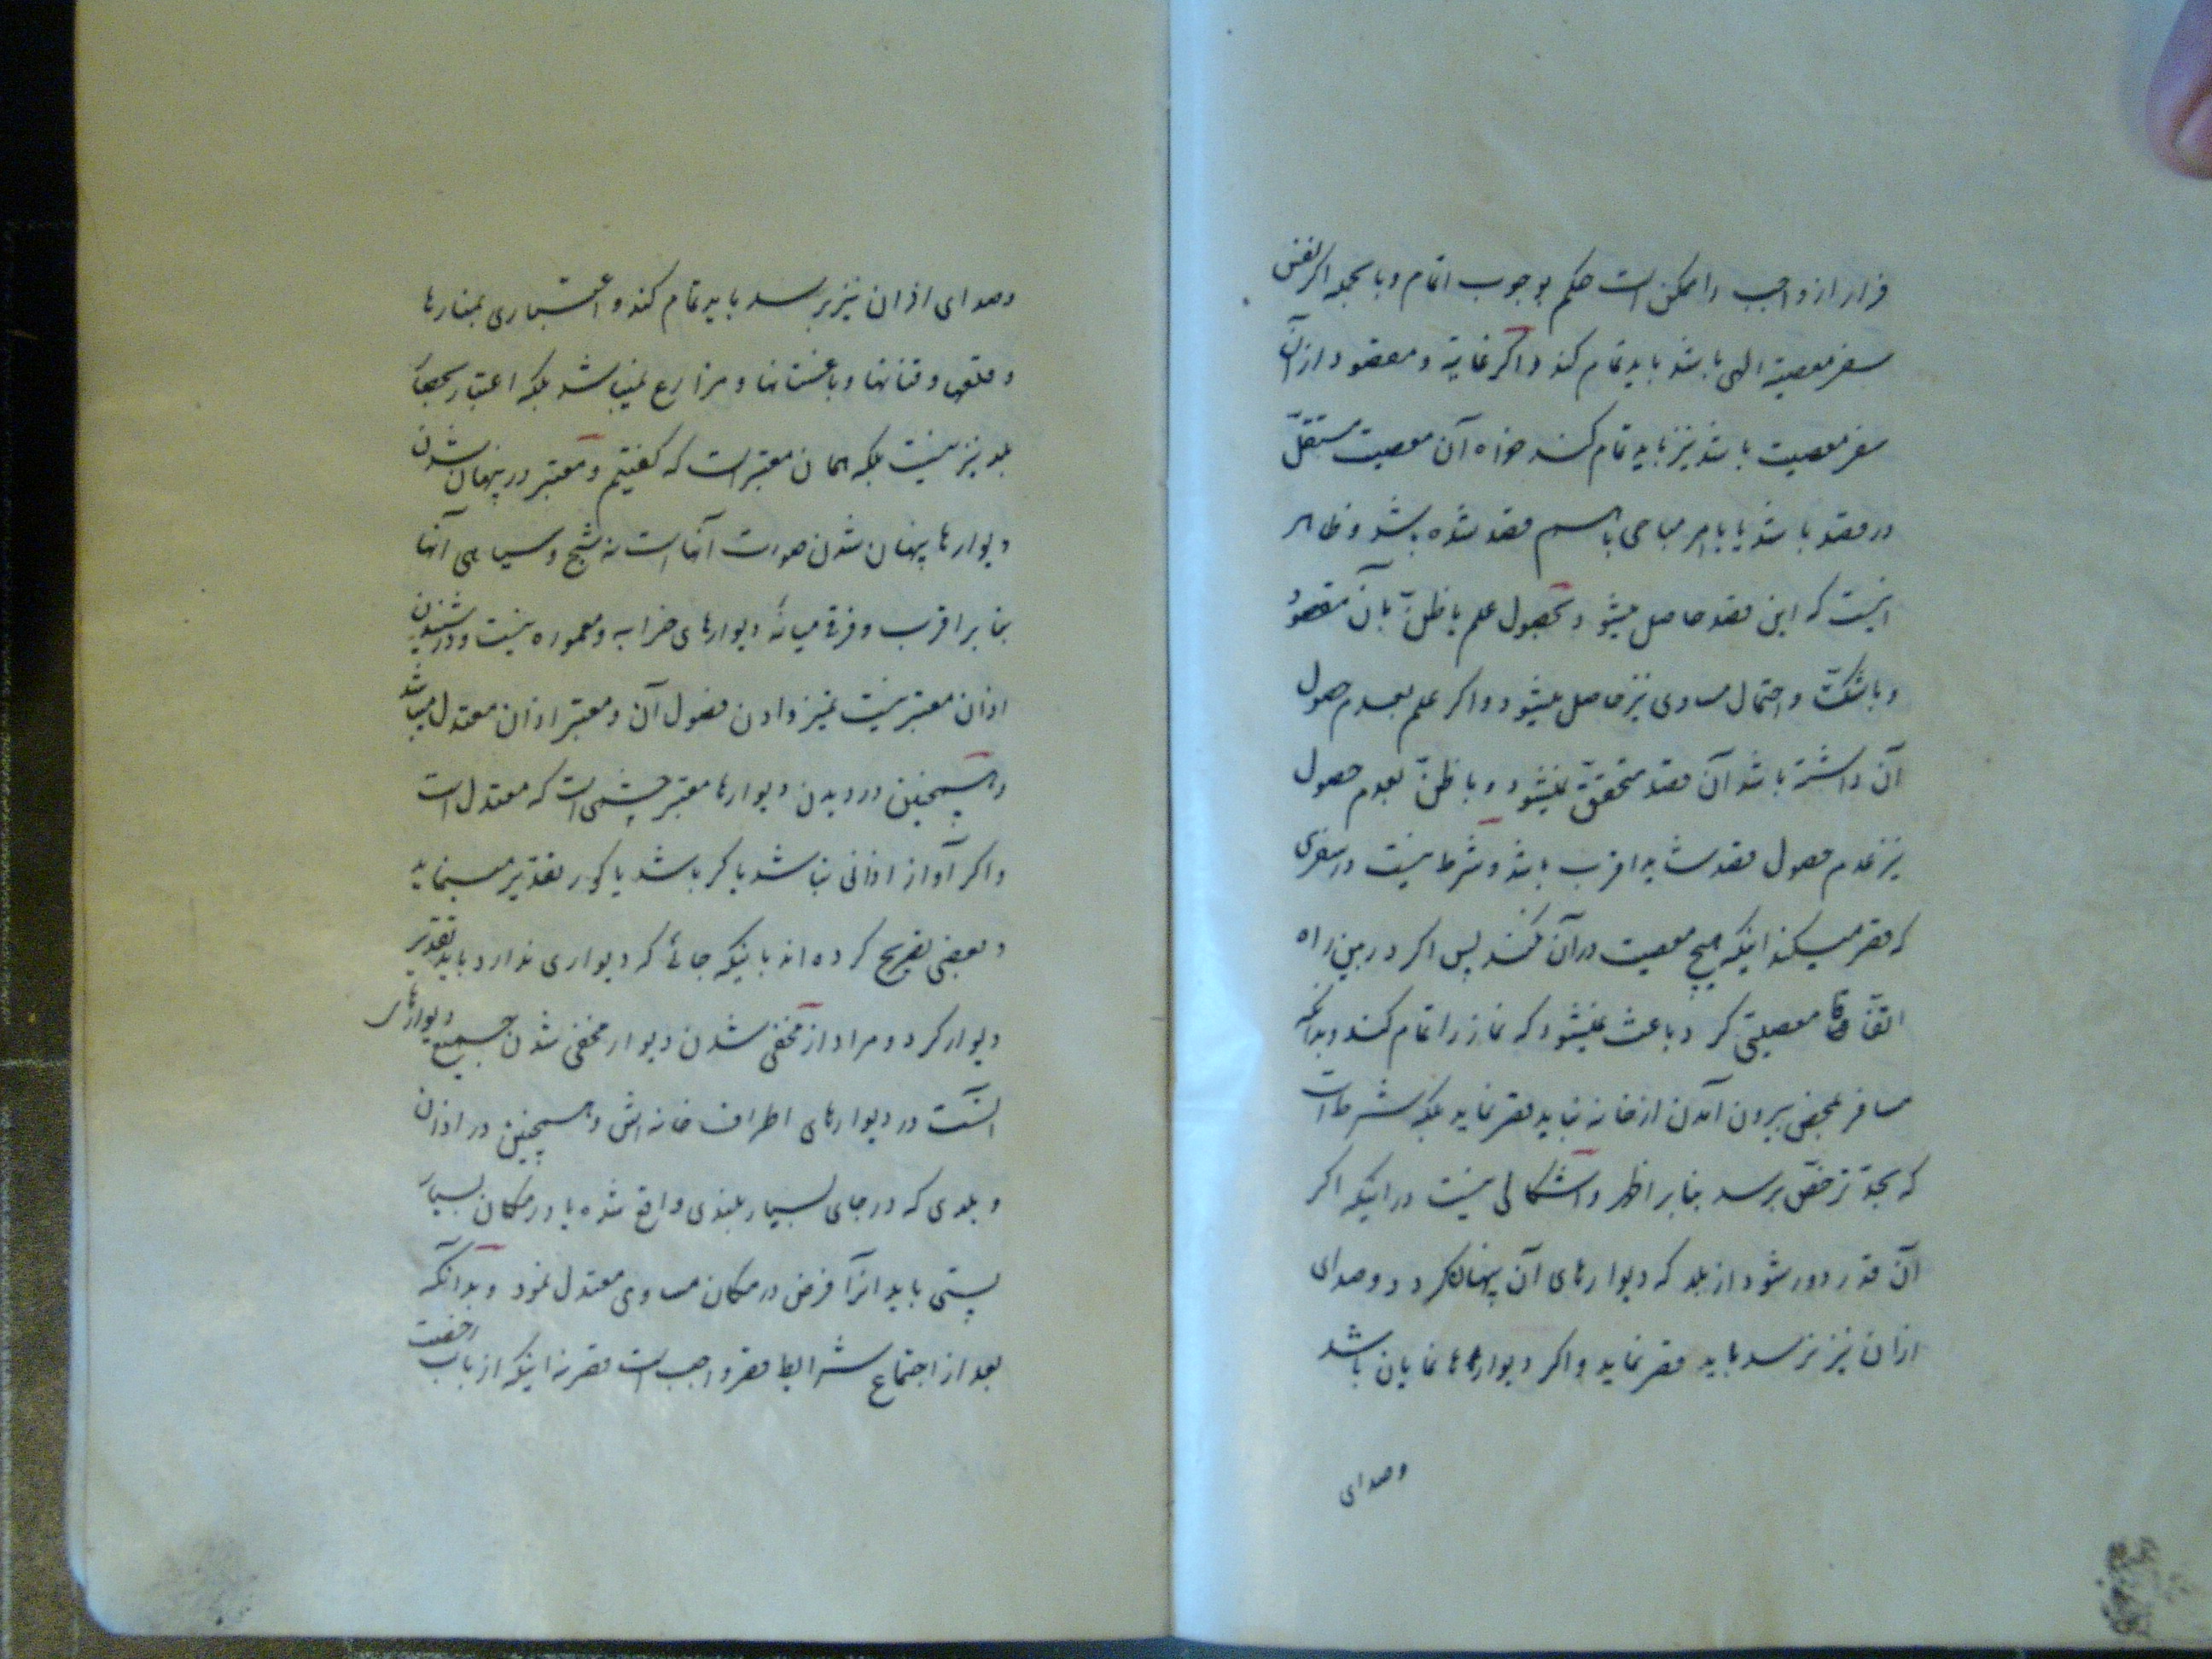 فرار از واجب را ممکن است حکم بوجوب اتمام و بالجمله اگر نفس
سفر معصیة الهی باشد باید تمام کند و اگر غایة و مقصود از آن
سفر معصیت باشد نیز باید تمام کند خواه آن معصیت مستقلّ
در قصد باشد یا با امر مباحی باهم قصد شده باشد و ظاهر
اینست که این قصد حاصل میشود بحصول علم یا ظنّ بآن مقصود
و با شکّ و احتمال مساوی نیز حاصل میشود و اگر علم بعدم حصول
آن داشته باشد آن قصد متحقق نمیشود و با ظنّ بعدم حصول
نیز عدم حصول قصد شاید اقرب باشد و شرط نیست در سفری
که قصر میکند اینکه هیچ معصیت در آن نکند پس اگر در بین راه
اتّفاقا معصیتی کرد باعث نمیشود که نماز را تمام کند و بدانکه
مسافر بمحض بیرون آمدن از خانه نباید قصر نماید بلکه شرط است
که بحدّ ترخّص برسد بنابر اظهر و اشکالی نیست در اینکه اگر
آن قدر دور شود از بلد که دیوارهای آن پنهان گردد و صدای
اذان نیز نرسد باید قصر نماید و اگر دیوارها نمایان باشد
وصدای
وصدای اذان نیز برسد باید تمام کند و اعتباری بمنارها
و قلعها و قناتها و باغستانها و مزارع نمیباشد بلکه اعتبار بحصار
بلد نیز نیست بلکه همان معتبر است که گفتیم و معتبر در پنهان شدن
دیوارها پنهان شدن صورت آنها است نه شبح و سیاهی آنها
بنابر اقرب و فرقی میانهٔ دیوارهای خرابه و معموره نیست و در شنیدن
اذان معتبر نیست تمیز دادن فصول آن و معتبر اذان معتدل میباشد
و همچنین در دیدن دیوارها معتبر چشمی است که معتدل است
و اگر آواز اذانی نباشد یا کر باشد یا کور تقدیر مینماید
و بعضی تصریح کرده‌اند باینکه جائی که دیواری ندارد باید تقدیر
دیوار کرد و مراد از مخفی شدن دیوار مخفی شدن جمیع دیوارهای
است در دیوارهای اطراف خانه‌اش و همچنین در اذان
و بلدی که در جای بسیار بلندی واقع شده یا در مکان بسیار
پستی باید آنرا فرض در مکان مساوی معتدل نمود و بدانکه
بعد از اجتماع شرایط قصر واجب است قصر نه اینکه از باب رخصت